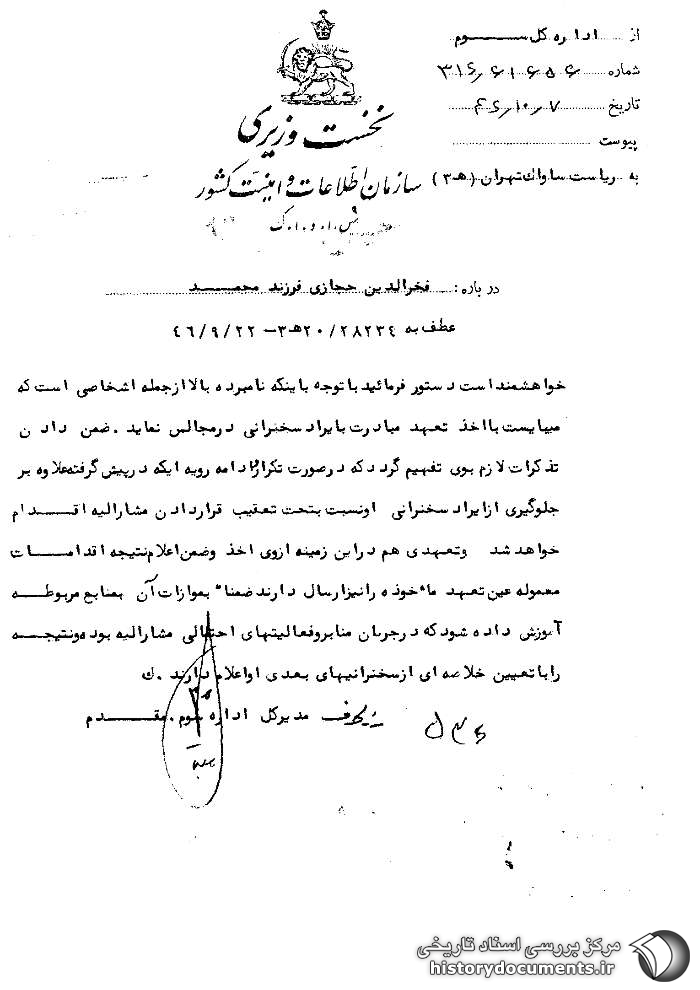 از اداره کل سوم
شماره ۳۱۶/۶۱۶۵۶
تاریخ ۴۶/۱۰/۷
پیوست
به ریاست ساواک تهران (ﻫ ۳)
نخست وزیری
سازمان اطلاعات و امنیت کشور
س.ا.و.ا.ک
درباره: فخرالدین حجازی فرزند محمد
عطف به ۲۸۲۳۴/۲۰ﻫ۳ – ۴۶/۹/۲۲
خواهشمند است دستور فرمائید با توجه باینکه نامبرده بالا ازجمله اشخاصی است که
میبایست با اخذ تعهد مبادرت بایراد سخنرانی درمجالس نماید . ضمن دادن
تذکرات لازم بوی تفهیم گردد که درصورت تکرار وادامه رویه ایکه درپیش گرفته علاوه بر
جلوگیری ازایراد سخنرانی اونسبت بتحت تعقیب قراردادن مشارالیه اقدام
خواهد شد وتعهدی هم دراین زمینه ازوی اخذ وضمن اعلام نتیجه اقدامات
معموله عین تعهد مأخوذه رانیز ارسال دارند ضمناً بموازات آن بمنابع مربوطه
آموزش داده شود که درجریان منابر وفعالیتهای احتمالی مشارالیه بوده ونتیجه
راباتعیین خلاصه ای ازسخنرانیهای بعدی اواعلام دارند . ک
مدیرکل اداره سوم . مقدم
مرکز بررسی اسناد تاریخی
historydocuments.ir